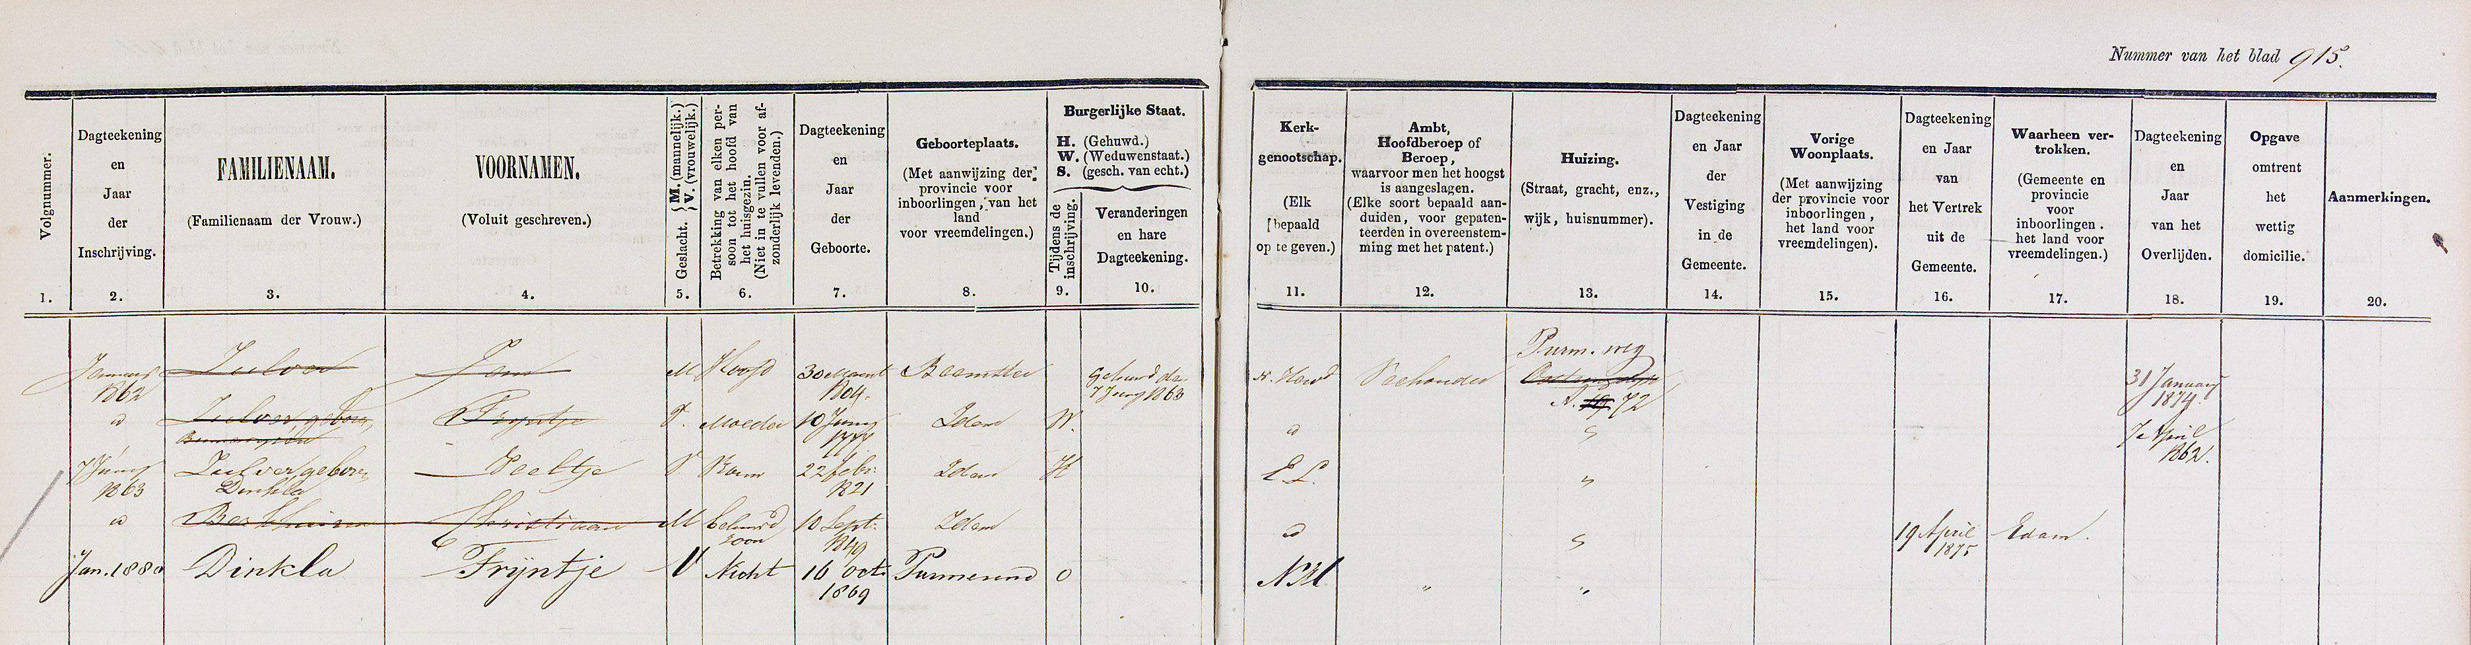 Nummer van het blad 915.
Volgnummer.
1.
Dagteekening
en
Jaar
der
Inschrijving.
2.
FAMILIENAAM.
(Familienaam der Vrouw.)
3.
VOORNAMEN.
(Voluit geschreven.)
4.
Geslacht. { M. (mannelijk.)
V. (vrouwelijk.) }
5.
Betrekking van elken per-
soon tot het hoofd van
het huisgezin.
(Niet in te vullen voor af-
zonderlijk levenden.)
6.
Dagteekening
en
Jaar
der
Geboorte.
7.
Geboorteplaats.
(Met aanwijzing der
provincie voor
inboorlingen, van het
land
voor vreemdelingen.)
8.
Burgerlijke Staat.
H. (Gehuwd.)
W. (Weduwenstaat.)
S. (gesch. van echt.)
Tijdens de
inschrijving.
9.
Veranderingen
en hare
Dagteekening.
10.
Kerk-
genootschap.
(Elk
bepaald
op te geven.)
11.
Ambt,
Hoofdberoep of
Beroep,
waarvoor men het hoogst
is aangeslagen.
(Elke soort bepaald aan-
duiden, voor gepaten-
teerden in overeenstem-
ming met het patent.)
12.
Huizing.
(Straat, gracht, enz.,
wijk, huisnummer).
13.
Dagteekening
en Jaar
der
Vestiging
in de
Gemeente.
14.
Vorige
Woonplaats.
(Met aanwijzing
der provincie voor
inboorlingen,
het land voor
vreemdelingen).
15.
Dagteekening
en Jaar
van
het Vertrek
uit de
Gemeente.
16.
Waarheen ver-
trokken.
(Gemeente en
provincie
voor
inboorlingen.
het land voor
vreemdelingen.)
17.
Dagteekening
en
Jaar
van het
Overlijden.
18.
Opgave
omtrent
het
wettig
domicilie.
19.
Aanmerkingen.
20.
Januarij
1862
Jan
M
Hoofd
30 Maart
1804.
Beemster
Gehuwd den
7 Junij 1863
N. Herv
Veehouder
Purm. weg
A. 72
31 Januarij
1874.
id
Trijntje
V.
Moeder
10 Junij
1777
Idem
W.
id
"
7e April
1862.
7 Junij
1863
Zulver geboren
Dinkla
V
Vrouw
22 Febr:
1821
Idem
H
E L.
"
id
Christiaan
M
behuwd
zoon
10 Sept:
1849
Idem
id
"
19 April
1875
Edam.
Jan. 1880
Dinkla
Trijntje
V
Nicht
16 Oct.
1869
Purmerend
O
N H
"
"